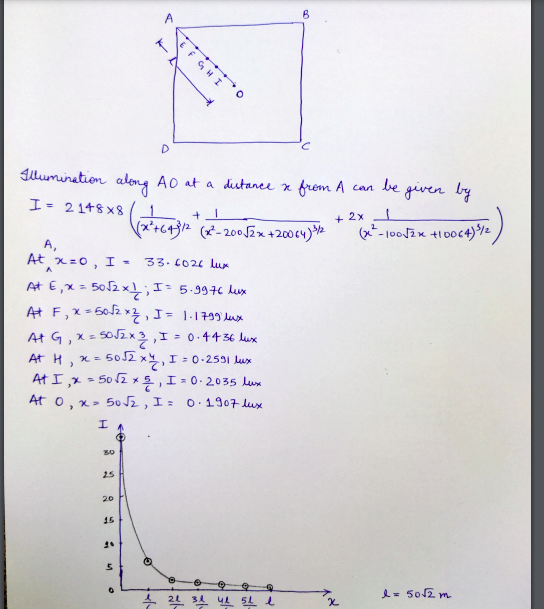 A B
E
F
l
G
H
I
O
D C
Illumination along AO at a distance x from A can be given by
I = 2148×8 ( 1/(x²+64)^3/2 + 1/(x²-200√2x+20064)^3/2 + 2× 1/(x²-100√2x+10064)^3/2 )
At A, x=0, I = 33.6026 lux
At E, x = 50√2×1/6, I = 5.9976 lux
At F, x = 50√2×2/6, I = 1.1799 lux
At G, x = 50√2×3/6, I = 0.4436 lux
At H, x = 50√2×4/6, I = 0.2591 lux
At I, x = 50√2×5/6, I = 0.2035 lux
At O, x = 50√2, I = 0.1907 lux
I
30
25
20
15
10
5
0
l/6 2l/6 3l/6 4l/6 5l/6 l x l = 50√2 m